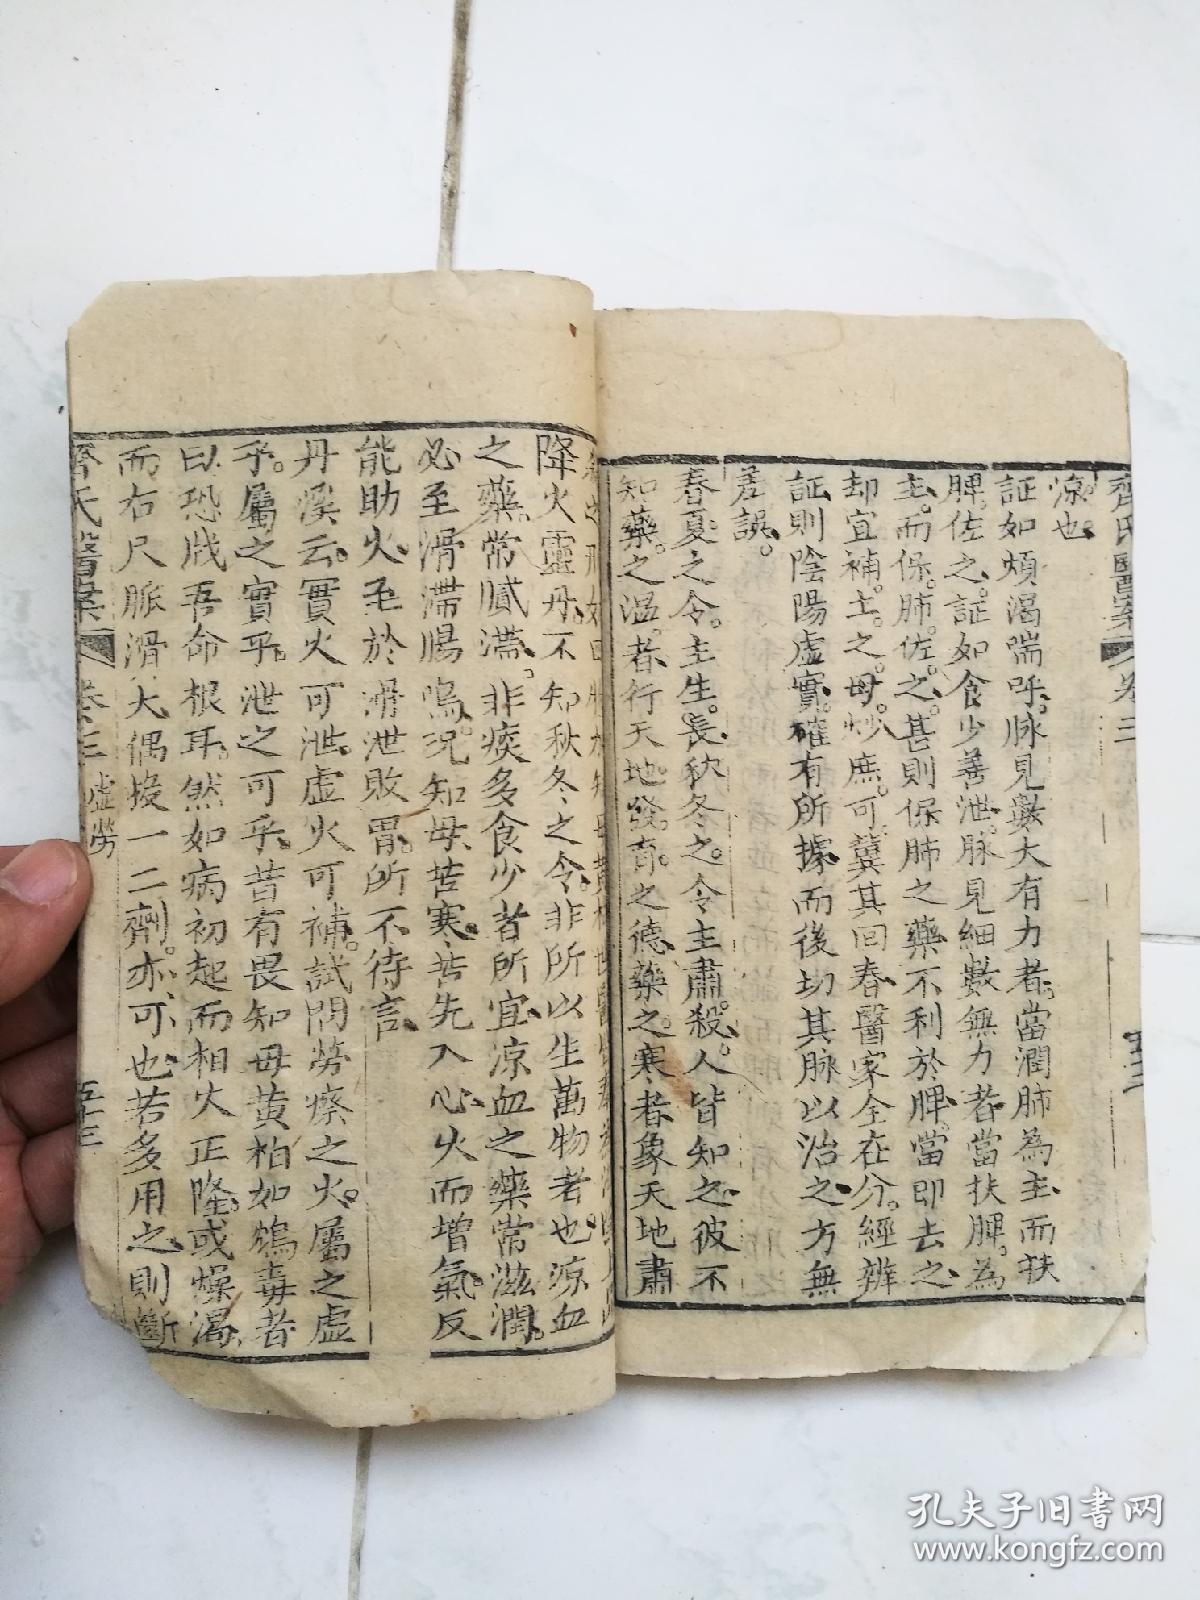 齊氏醫案 卷三
涼也
証如煩渴喘呼脉見數大有力者當潤肺為主而扶
脾佐之証如食少善泄脉見細數無力者當扶脾為
主而保肺佐之甚則保肺之藥不利於脾當即去之
却宜補土之母炒庶可冀其回春醫家全在分經辨
証則陰陽虛實確有所據而後切其脉以治之方無
差誤
春夏之令主生長秋冬之令主肅殺人皆知之彼不
知藥之温者行天地發育之德藥之寒者象天地肅
降火靈丹不知秋冬之令非所以生萬物者也凉血
之藥常膩滯非痰多食少者所宜凉血之藥常滋潤
必至滑滯腸鳴況知母苦寒苦先入心火而增氣反
能助火至於滑泄敗胃所不待言
丹溪云實火可泄虛火可補試問勞瘵之火屬之虛
乎屬之實乎泄之可乎昔有畏知母黄柏如鴆毒者
曰恐戕吾命根耳然如病初起而相火正隆或燥渴
而右尺脈滑大偶投一二劑亦可也若多用之則斷
齊氏醫案 卷三 虛勞 五十三
孔夫子旧书网
www.kongfz.com